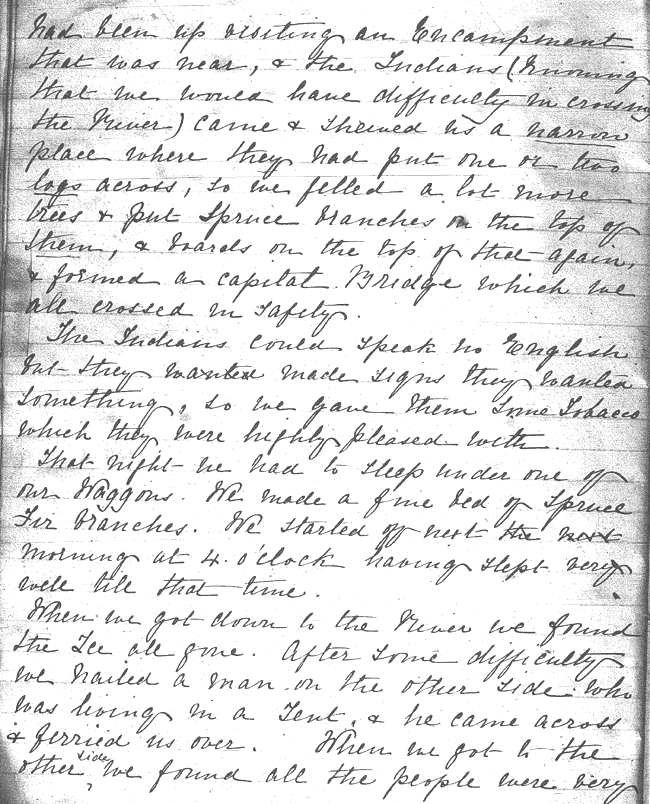 had been up visiting an Encampment
that was near, & the Indians (Knowing
that we would have difficulty in crossing
the River) came & shewed us a narrow
place where they had put one or two
logs across, so we felled a lot more
trees & put spruce branches on the top of
them, & boards on the top of that again,
& formed a capital Bridge which we
all crossed in safety.
The Indians could speak no English
but they wanted made signs they wanted
something, so we gave them some Tobacco
which they were highly pleased with.
That night we had to sleep under one of
our Waggons. We made a fine bed of Spruce
Fir branches. We started off next the next
morning at 4. o'clock having slept very
well till that time.
When we got down to the River we found
the Ice all gone. After some difficulty
we hailed a man on the other side who
was living in a Tent, & he came across
& ferried us over. When we got to the
other side, we found all the people were very